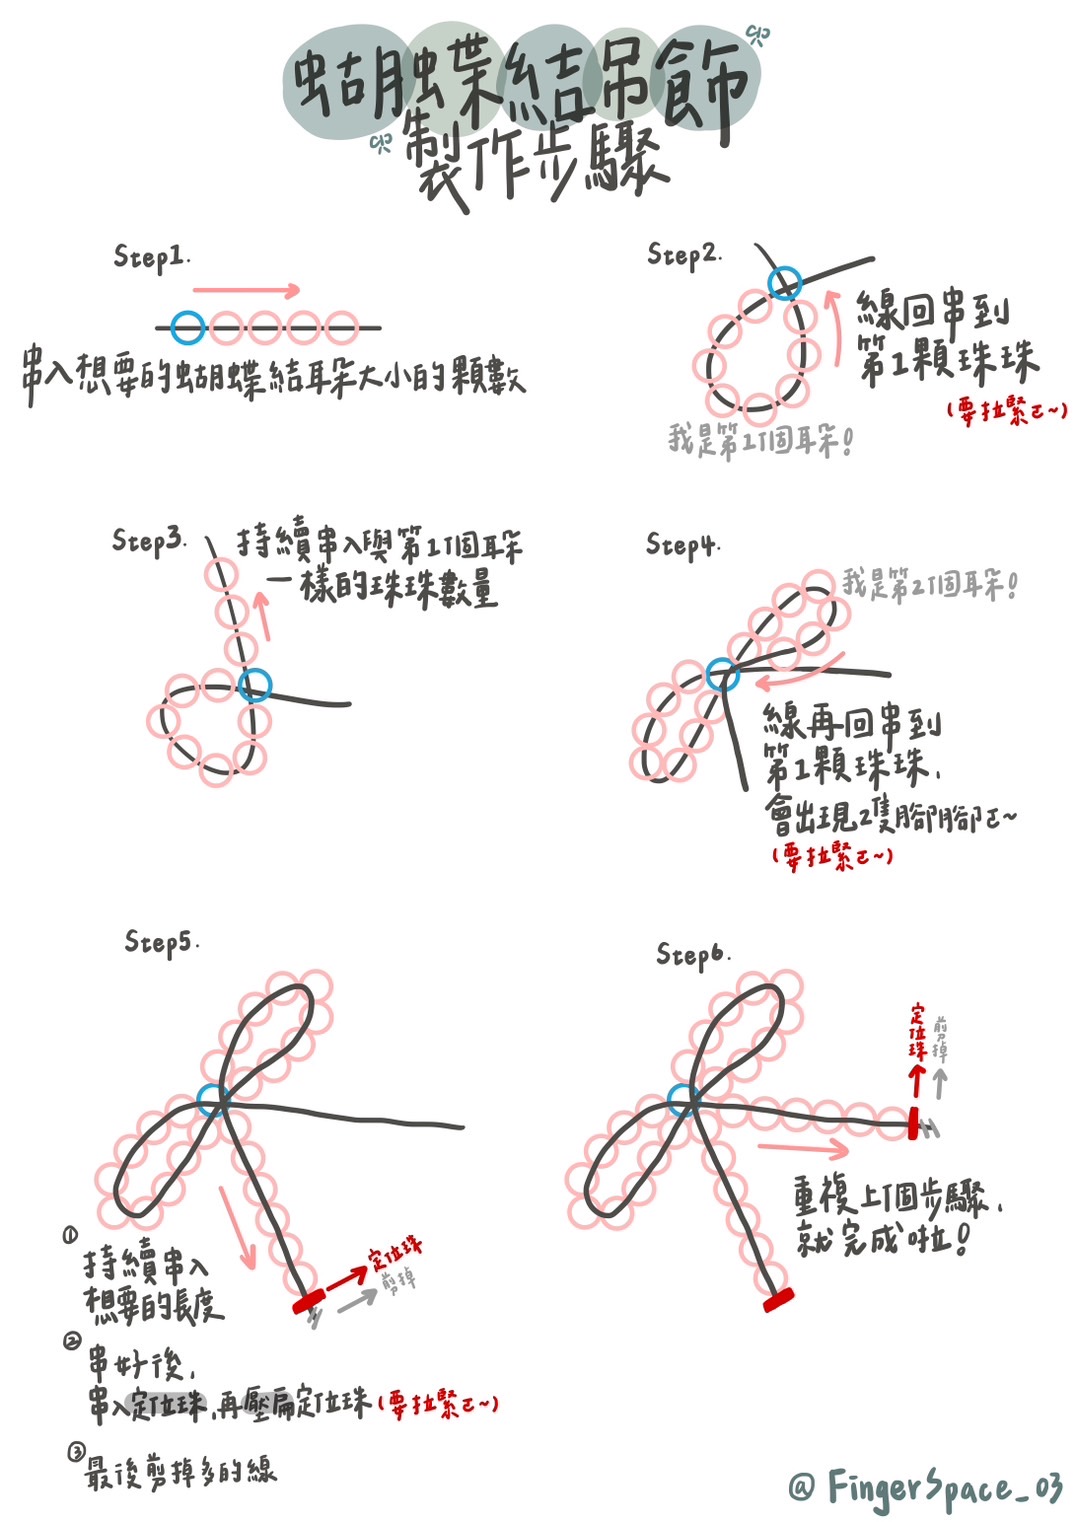 蝴蝶結吊飾
製作步驟
Step1.
串入想要的蝴蝶結耳朵大小的顆數
Step2.
線回串到
第1顆珠珠
(要拉緊ㄛ~)
我是第1個耳朵!
Step3.
持續串入與第1個耳朵
一樣的珠珠數量
Step4.
我是第2個耳朵!
線再回串到
第1顆珠珠,
會出現2隻腳腳ㄛ~
(要拉緊ㄛ~)
Step5.
定位珠
剪掉
① 持續串入
想要的長度
② 串好後,
串入定位珠,再壓扁定位珠(要拉緊ㄛ~)
③ 最後剪掉多的線
Step6.
定位珠
剪掉
重複上個步驟,
就完成啦!
@FingerSpace_03